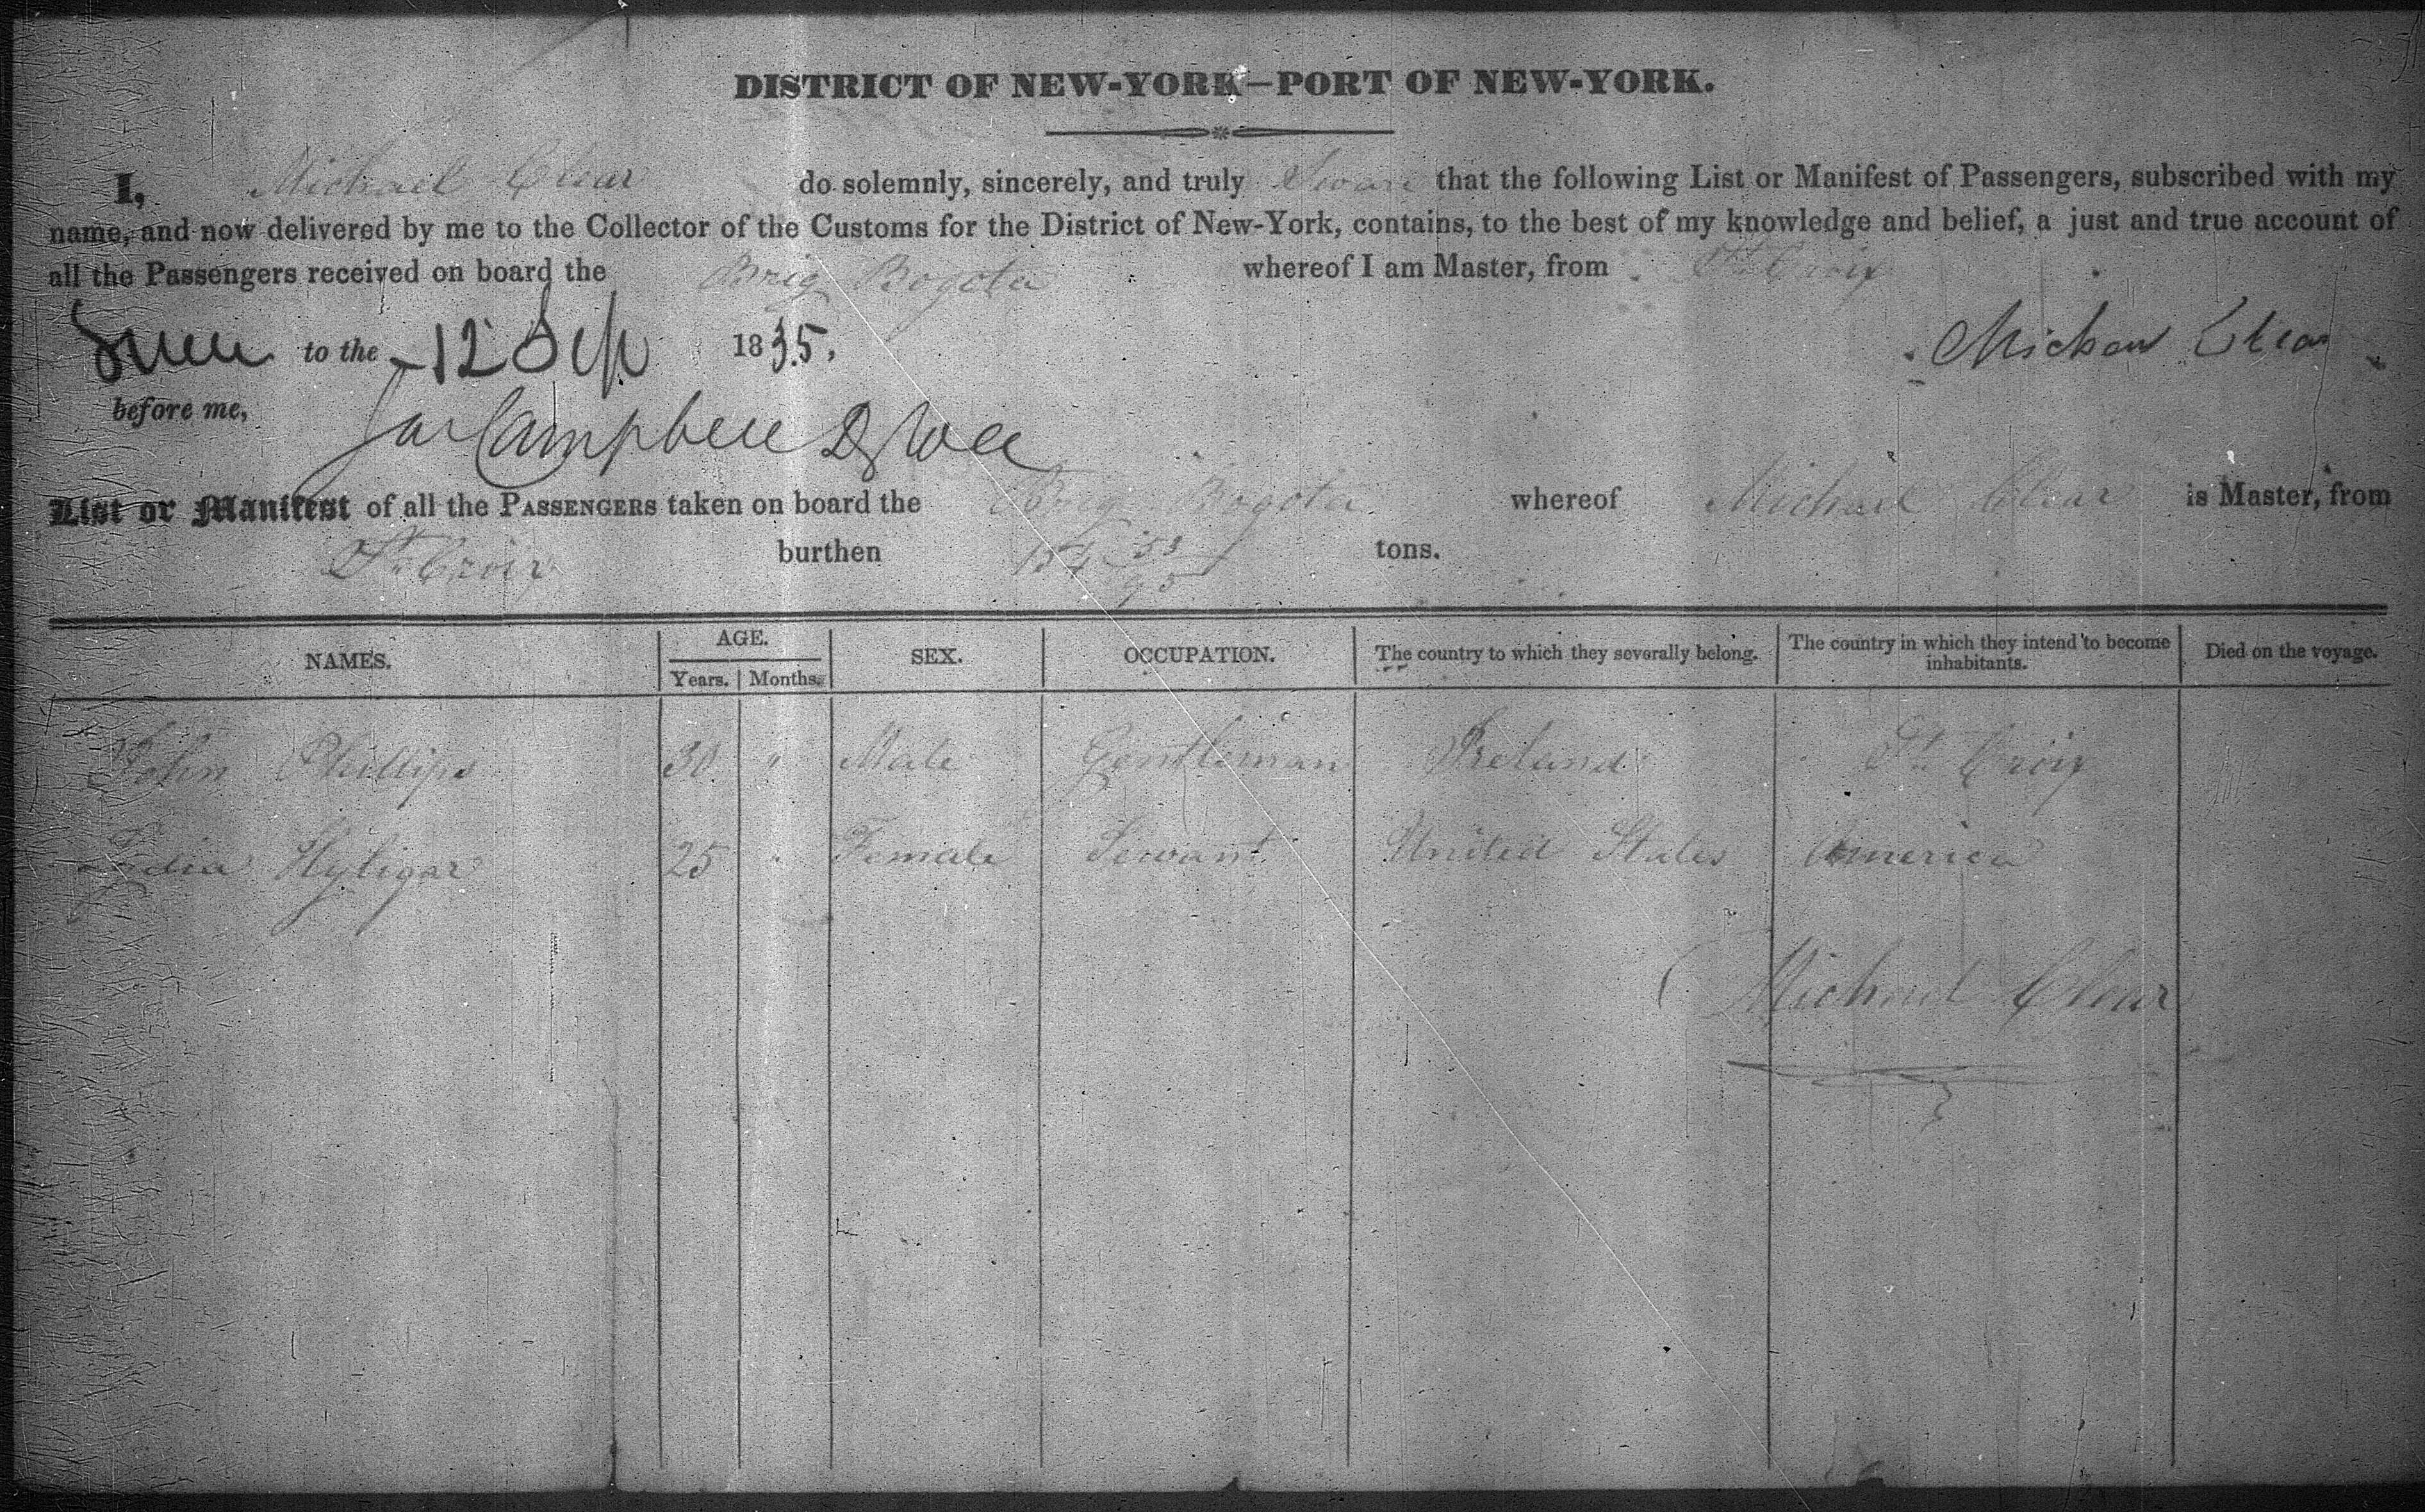 DISTRICT OF NEW-YORK—PORT OF NEW-YORK.
I, Michael Clear do solemnly, sincerely, and truly Swear that the following List or Manifest of Passengers, subscribed with my
name, and now delivered by me to the Collector of the Customs for the District of New-York, contains, to the best of my knowledge and belief, a just and true account of
all the Passengers received on board the Brig Bogota whereof I am Master, from St. Croix
to the 12 Sep 1835. Michael Clear
before me,
Jas Campbell
List or Manifest of all the PASSENGERS taken on board the Brig Bogota whereof Michael Clear is Master, from
St. Croix burthen 154 53/95 tons.
NAMES. AGE. SEX. OCCUPATION. The country to which they severally belong. The country in which they intend to become inhabitants. Died on the voyage.
Years. Months.
John Phillips 30 " Male Gentleman Ireland St. Croix
Lydia Hyligar 25 " Female Servant United States America
Michael Clear